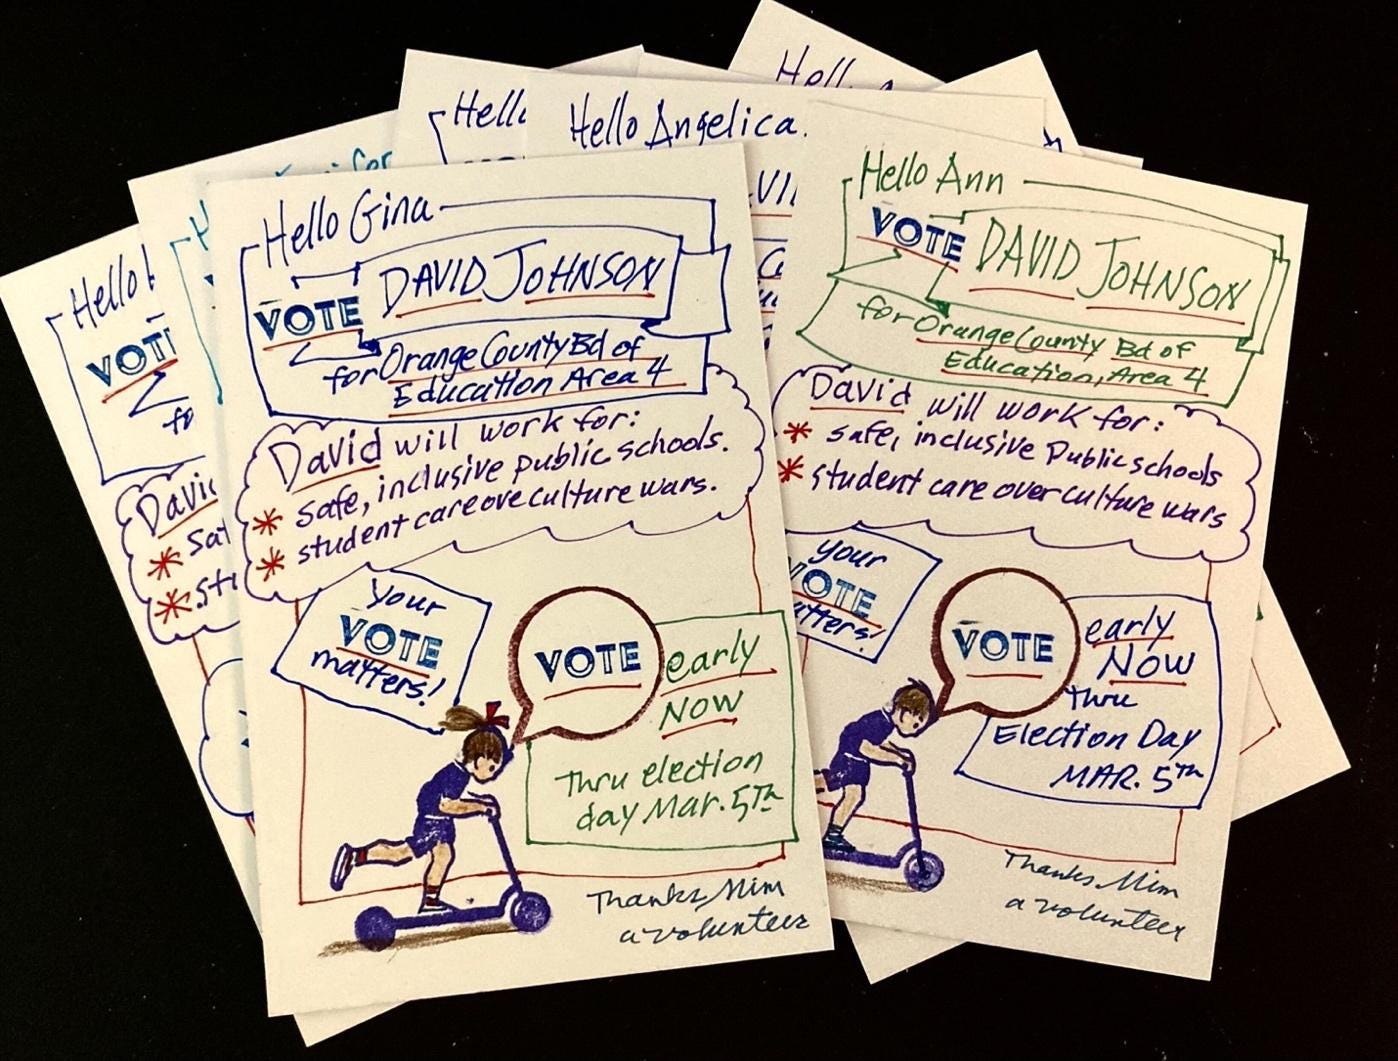 Hello Gina
VOTE DAVID JOHNSON
for Orange County Bd of
Education Area 4
David will work for:
* safe, inclusive public schools.
* student care ove culture wars.
your
VOTE
matters!
VOTE early
NOW
Thru election
day Mar. 5Th
Thanks, Mim
a volunteer
Hello Ann
VOTE DAVID JOHNSON
for Orange County Bd of
Education, Area 4
David will work for:
* safe, inclusive Public schools
* student care over culture wars
your
VOTE
VOTE early
NOW
Thru
Election Day
MAR. 5Th
Thanks, Mim
a volunteer
Hello Angelica.
Hello
Hello
Hello
VOT
David
*
*